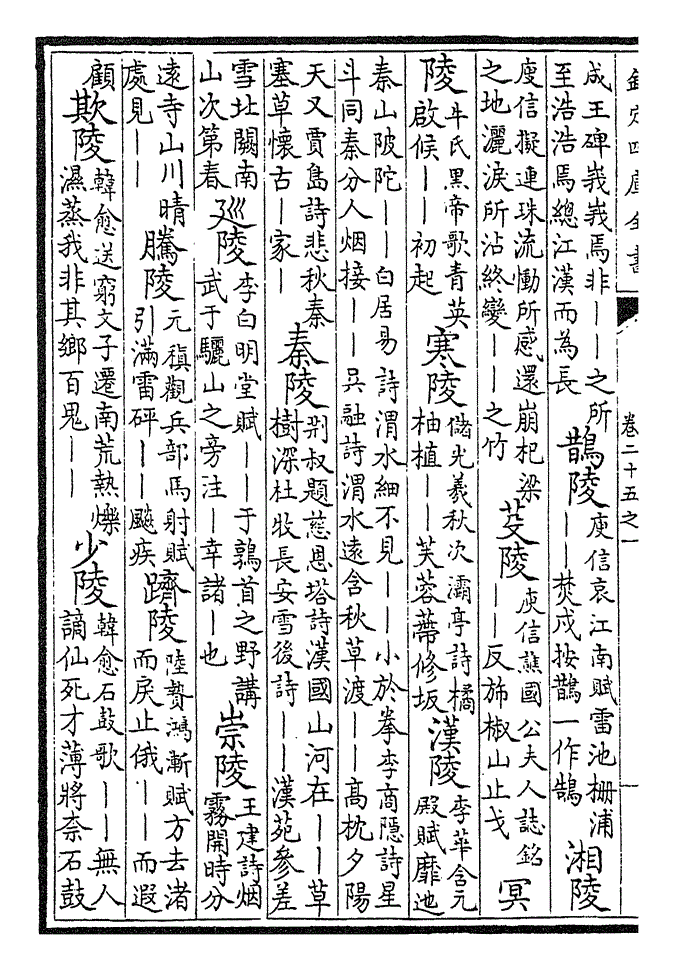 欽定四庫全書
卷二十五之一
咸王碑峩峩焉非——之所
至浩浩焉總江漢而為長
鵲陵
庾信哀江南賦雷池柵浦
——焚戍按鵲一作鵠
湘陵
庾信擬連珠流慟所感還崩杞梁
之地灑淚所沾終變——之竹
芟陵
庾信譙國公夫人誌銘
——反斾椒山止戈
冥
陵
斗氏黑帝歌青英
啟候——初起
寒陵
儲光羲秋次灞亭詩橘
柚植——芙蓉蔕修坂
漢陵
李華含元
殿賦靡迆
秦山陂陀——白居易詩渭水細不見——小於拳李商隱詩星
斗同秦分人烟接——吳融詩渭水遠含秋草渡——髙枕夕陽
天又賈島詩悲秋秦
塞草懷古—家—
秦陵
荆叔題慈恩塔詩漢國山河在——草
樹深杜牧長安雪後詩——漢苑參差
雪址闕南
山次第春
廵陵
李白明堂賦——于鶉首之野講
武于驪山之旁注—幸諸—也
崇陵
王建詩烟
霧開時分
遠寺山川晴
處見——
騰陵
元稹觀兵部馬射賦
引滿雷砰——飈疾
躋陵
陸贄鴻漸賦方去渚
而戾止俄——而遐
顧
欺陵
韓愈送窮文子遷南荒熱爍
濕蒸我非其鄉百鬼——
少陵
韓愈石鼓歌——無人
謫仙死才薄將奈石鼓